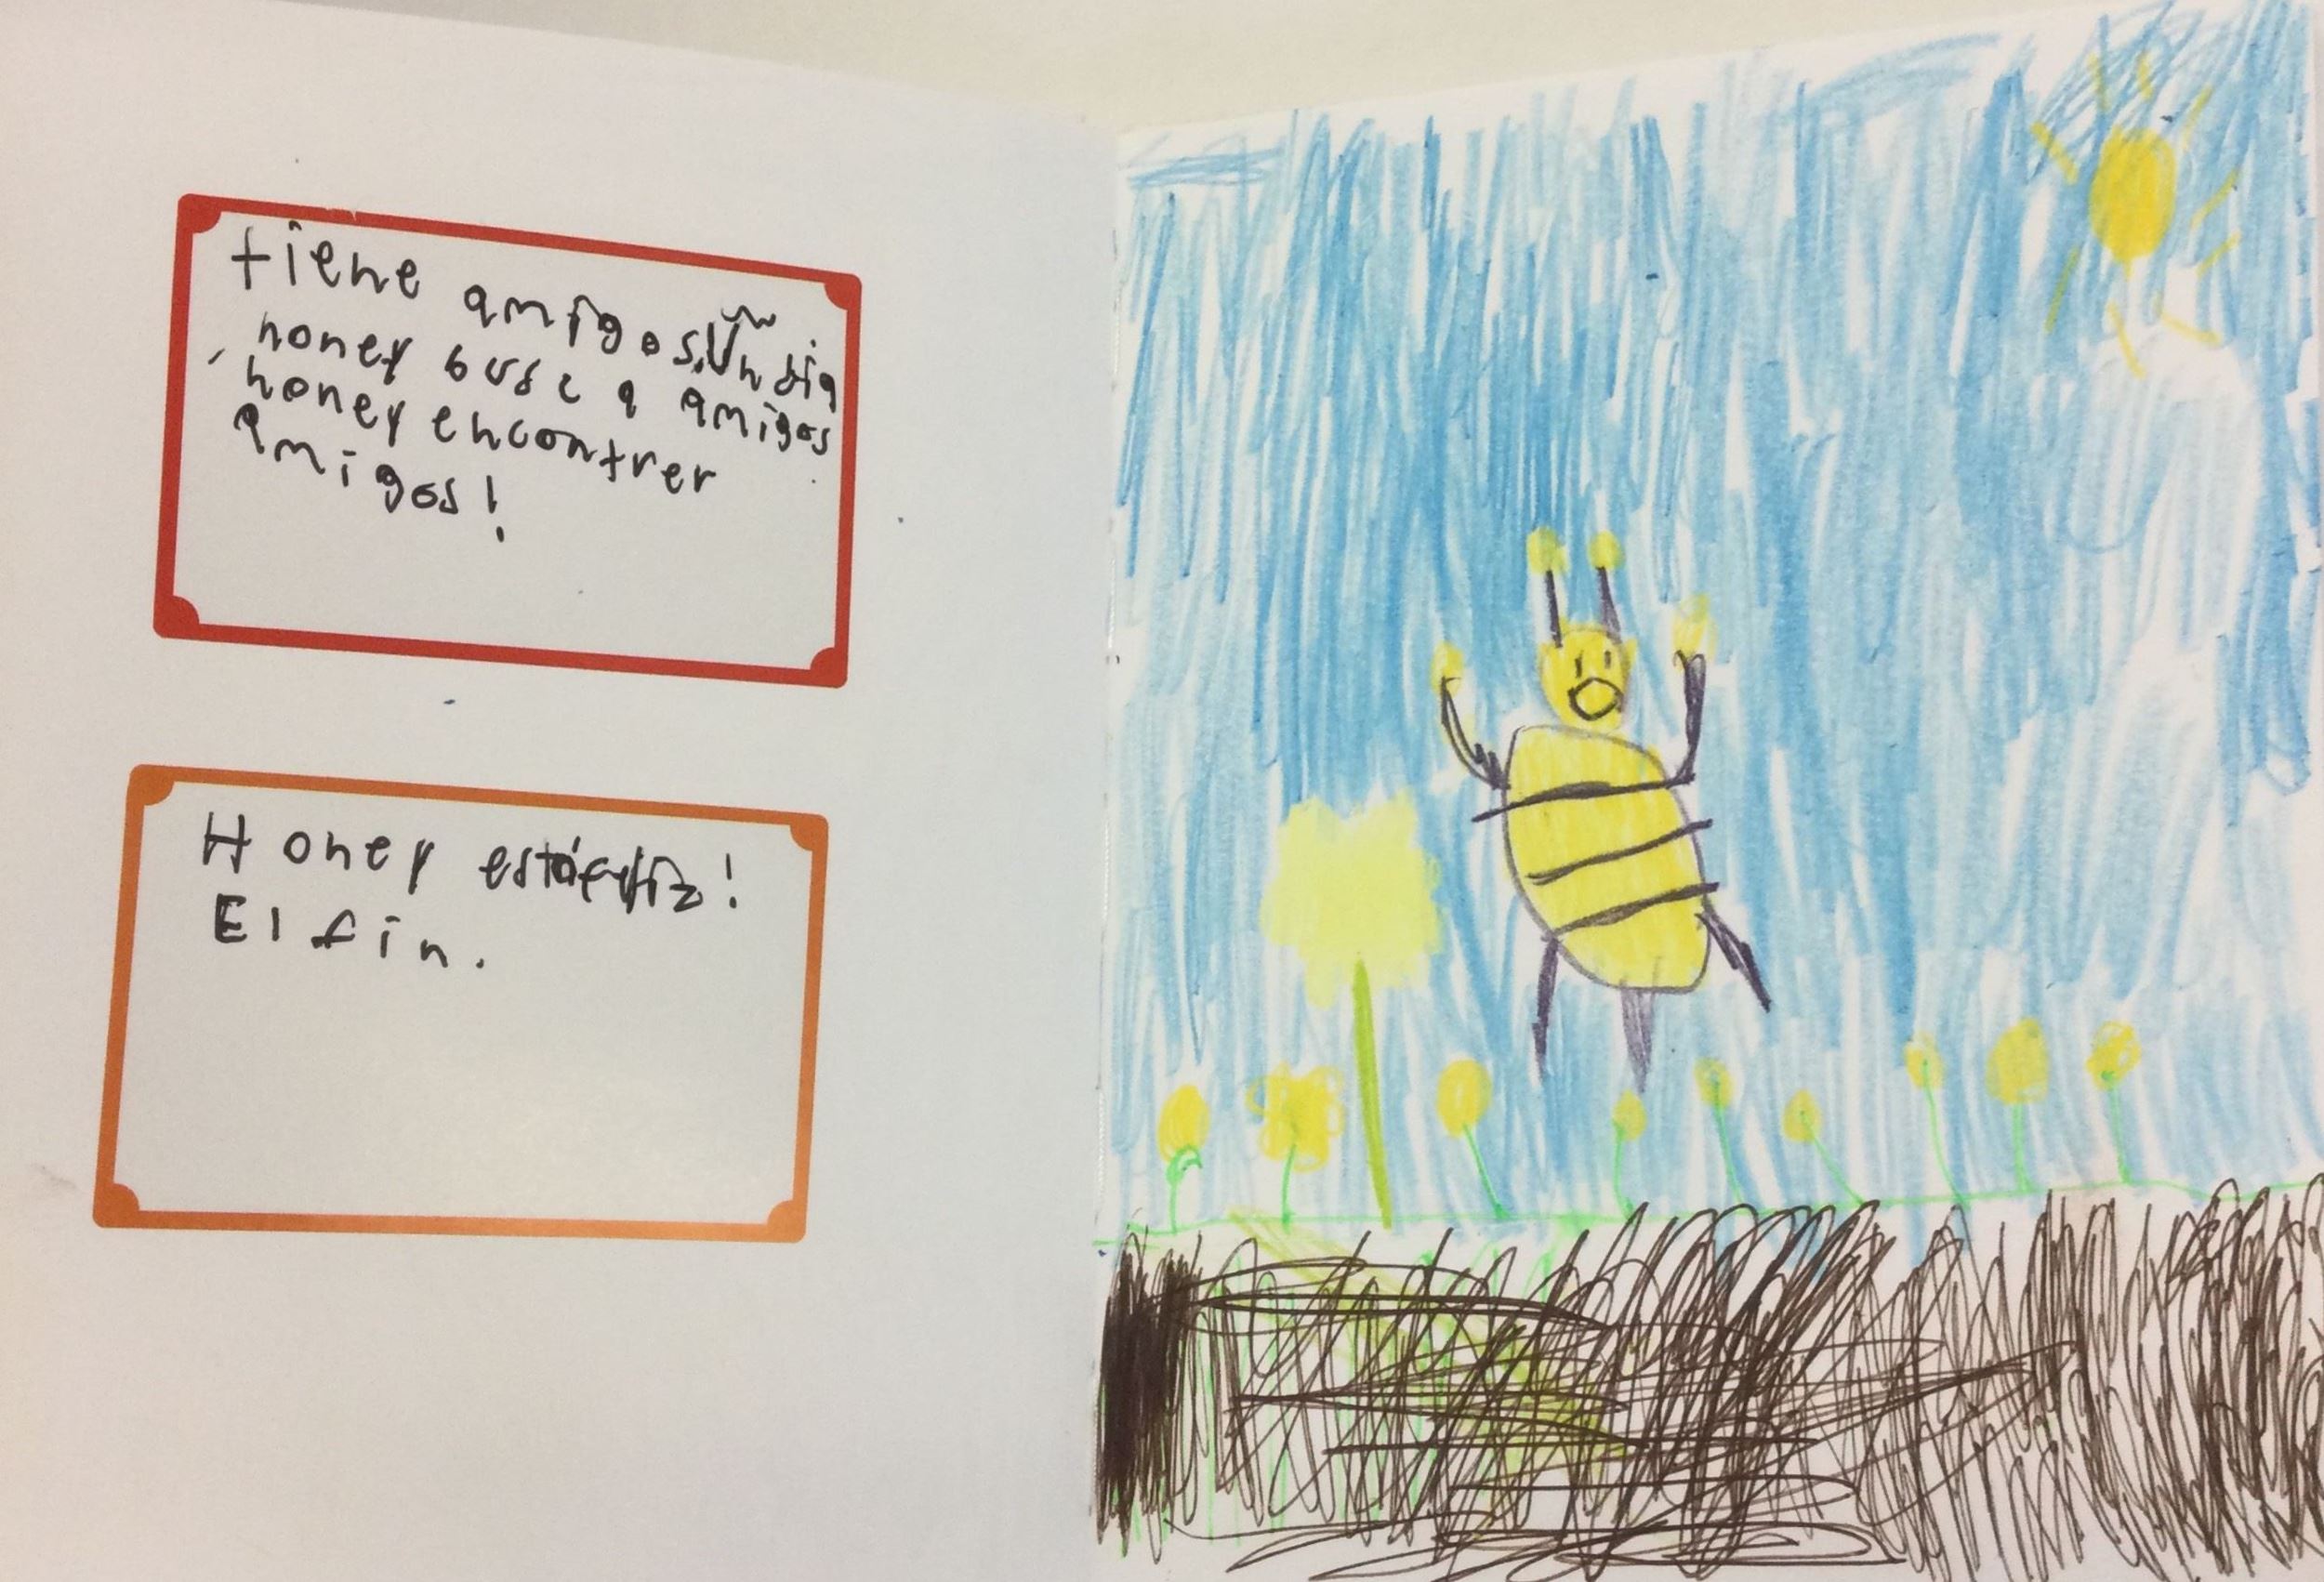 tiene amigos. Un dia
honey busca amigos
honey encontrer
amigos!
Honey está feliz!
El fin.